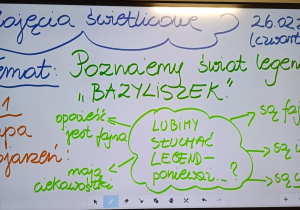 zajęcia świetlicowe
26.02
(czwart
Temat: Poznajemy świat legen
„BAZYLISZEK."
1
opowieść
jest fajna
mają
ciekawostki
LUBIMY
SŁUCHAĆ
LEGEND-
ponieważ...?
są faj
są
są